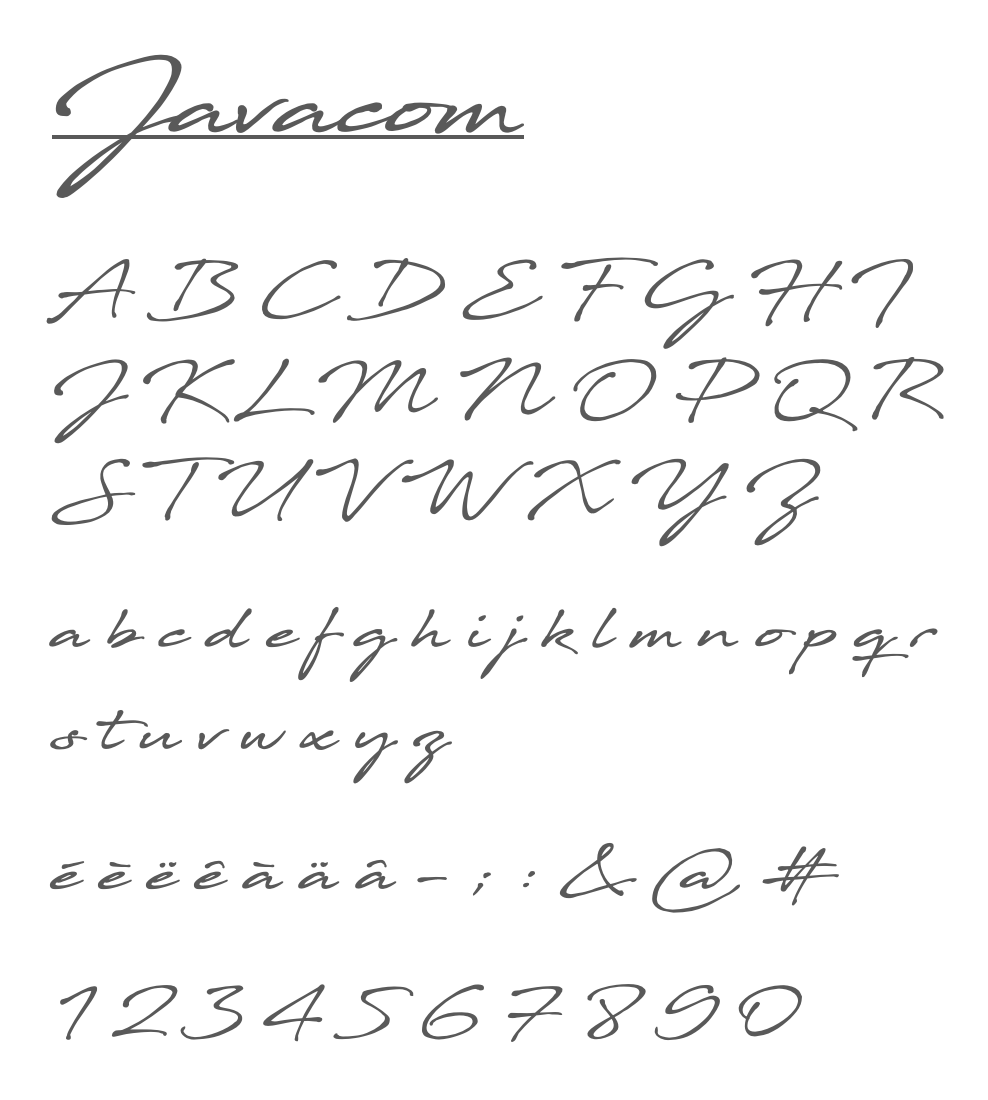 Javacom
A B C D E F G H I
J K L M N O P Q R
S T U V W X Y Z
a b c d e f g h i j k l m n o p q r
s t u v w x y z
é è ë ê à ä â - ; : & @ #
1 2 3 4 5 6 7 8 9 0